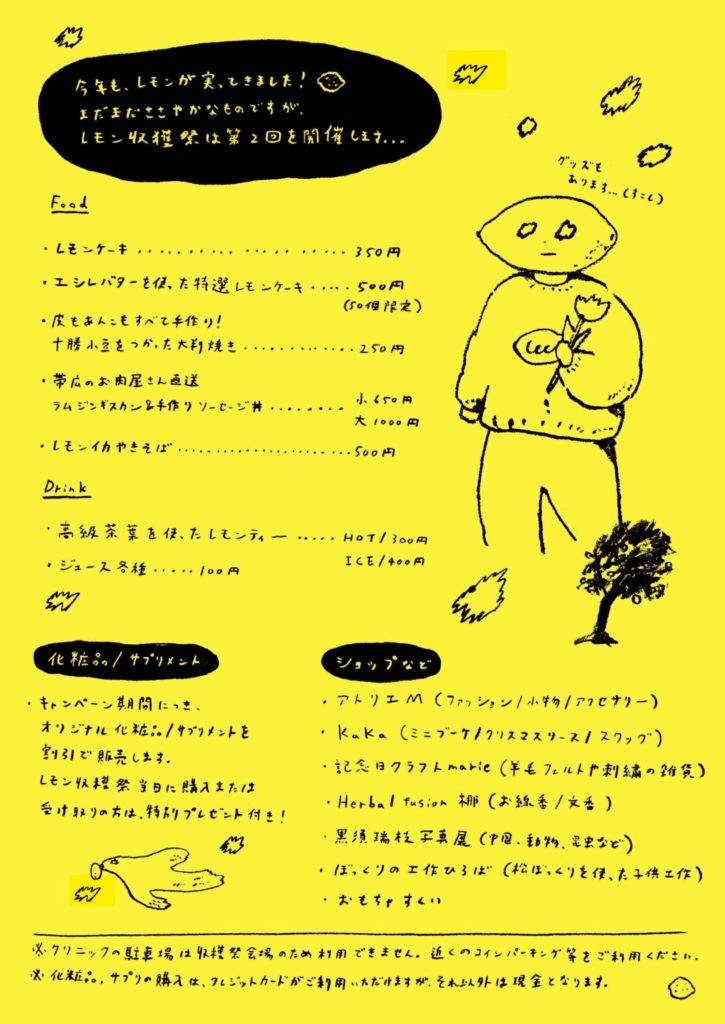 今年も、レモンが実ってきました!
まだまだささやかなものですが、
レモン収穫祭は第2回を開催します...
グッズも
あります...(すこし)
Food
・レモンケーキ ・・・・・・・・・・・・・・・・・・ 350円
・エシレバターを使った特選レモンケーキ ・・・・・ 500円
(50個限定)
・皮もあんこもすべて手作り!
十勝小豆をつかった大判焼き ・・・・・・・・・・・・ 250円
・帯広のお肉屋さん直送
ラムジンギスカン&手作りソーセージ丼 ・・・・・・・・ 小 650円
大 1000円
・レモンイカやきそば ・・・・・・・・・・・・・・・・・・ 500円
Drink
・高級茶葉を使ったレモンティー ・・・・・ HOT/300円
ICE/400円
・ジュース各種 ・・・・・ 100円
化粧品/サプリメント
・キャンペーン期間につき、
オリジナル化粧品/サプリメントを
割引で販売します。
レモン収穫祭当日に購入または
受け取りの方は、特別プレゼント付き!
ショップなど
・アトリエM(ファッション/小物/アクセサリー)
・KaKa(ミニブーケ/クリスマスリース/スワッグ)
・記念日クラフトmarie(羊毛フェルトや刺繍の雑貨)
・Herbal fusion 梛(お線香/文香)
・黒須瑞枝写真展(中国、動物、昆虫など)
・ぼっくりの工作ひろば(松ぼっくりを使った子供工作)
・おもちゃすくい
※クリニックの駐車場は収穫祭会場のため利用できません。近くのコインパーキング等をご利用ください。
※化粧品,サプリの購入は、クレジットカードがご利用いただけますが、それ以外は現金となります。